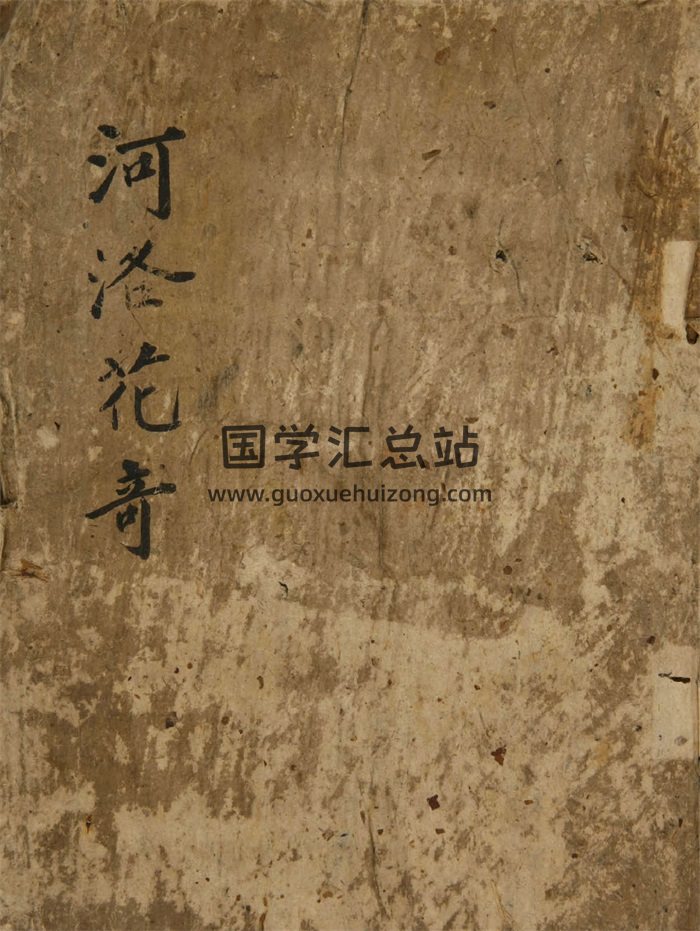 河洛花奇
国学汇总站
www.guoxuehuizong.com